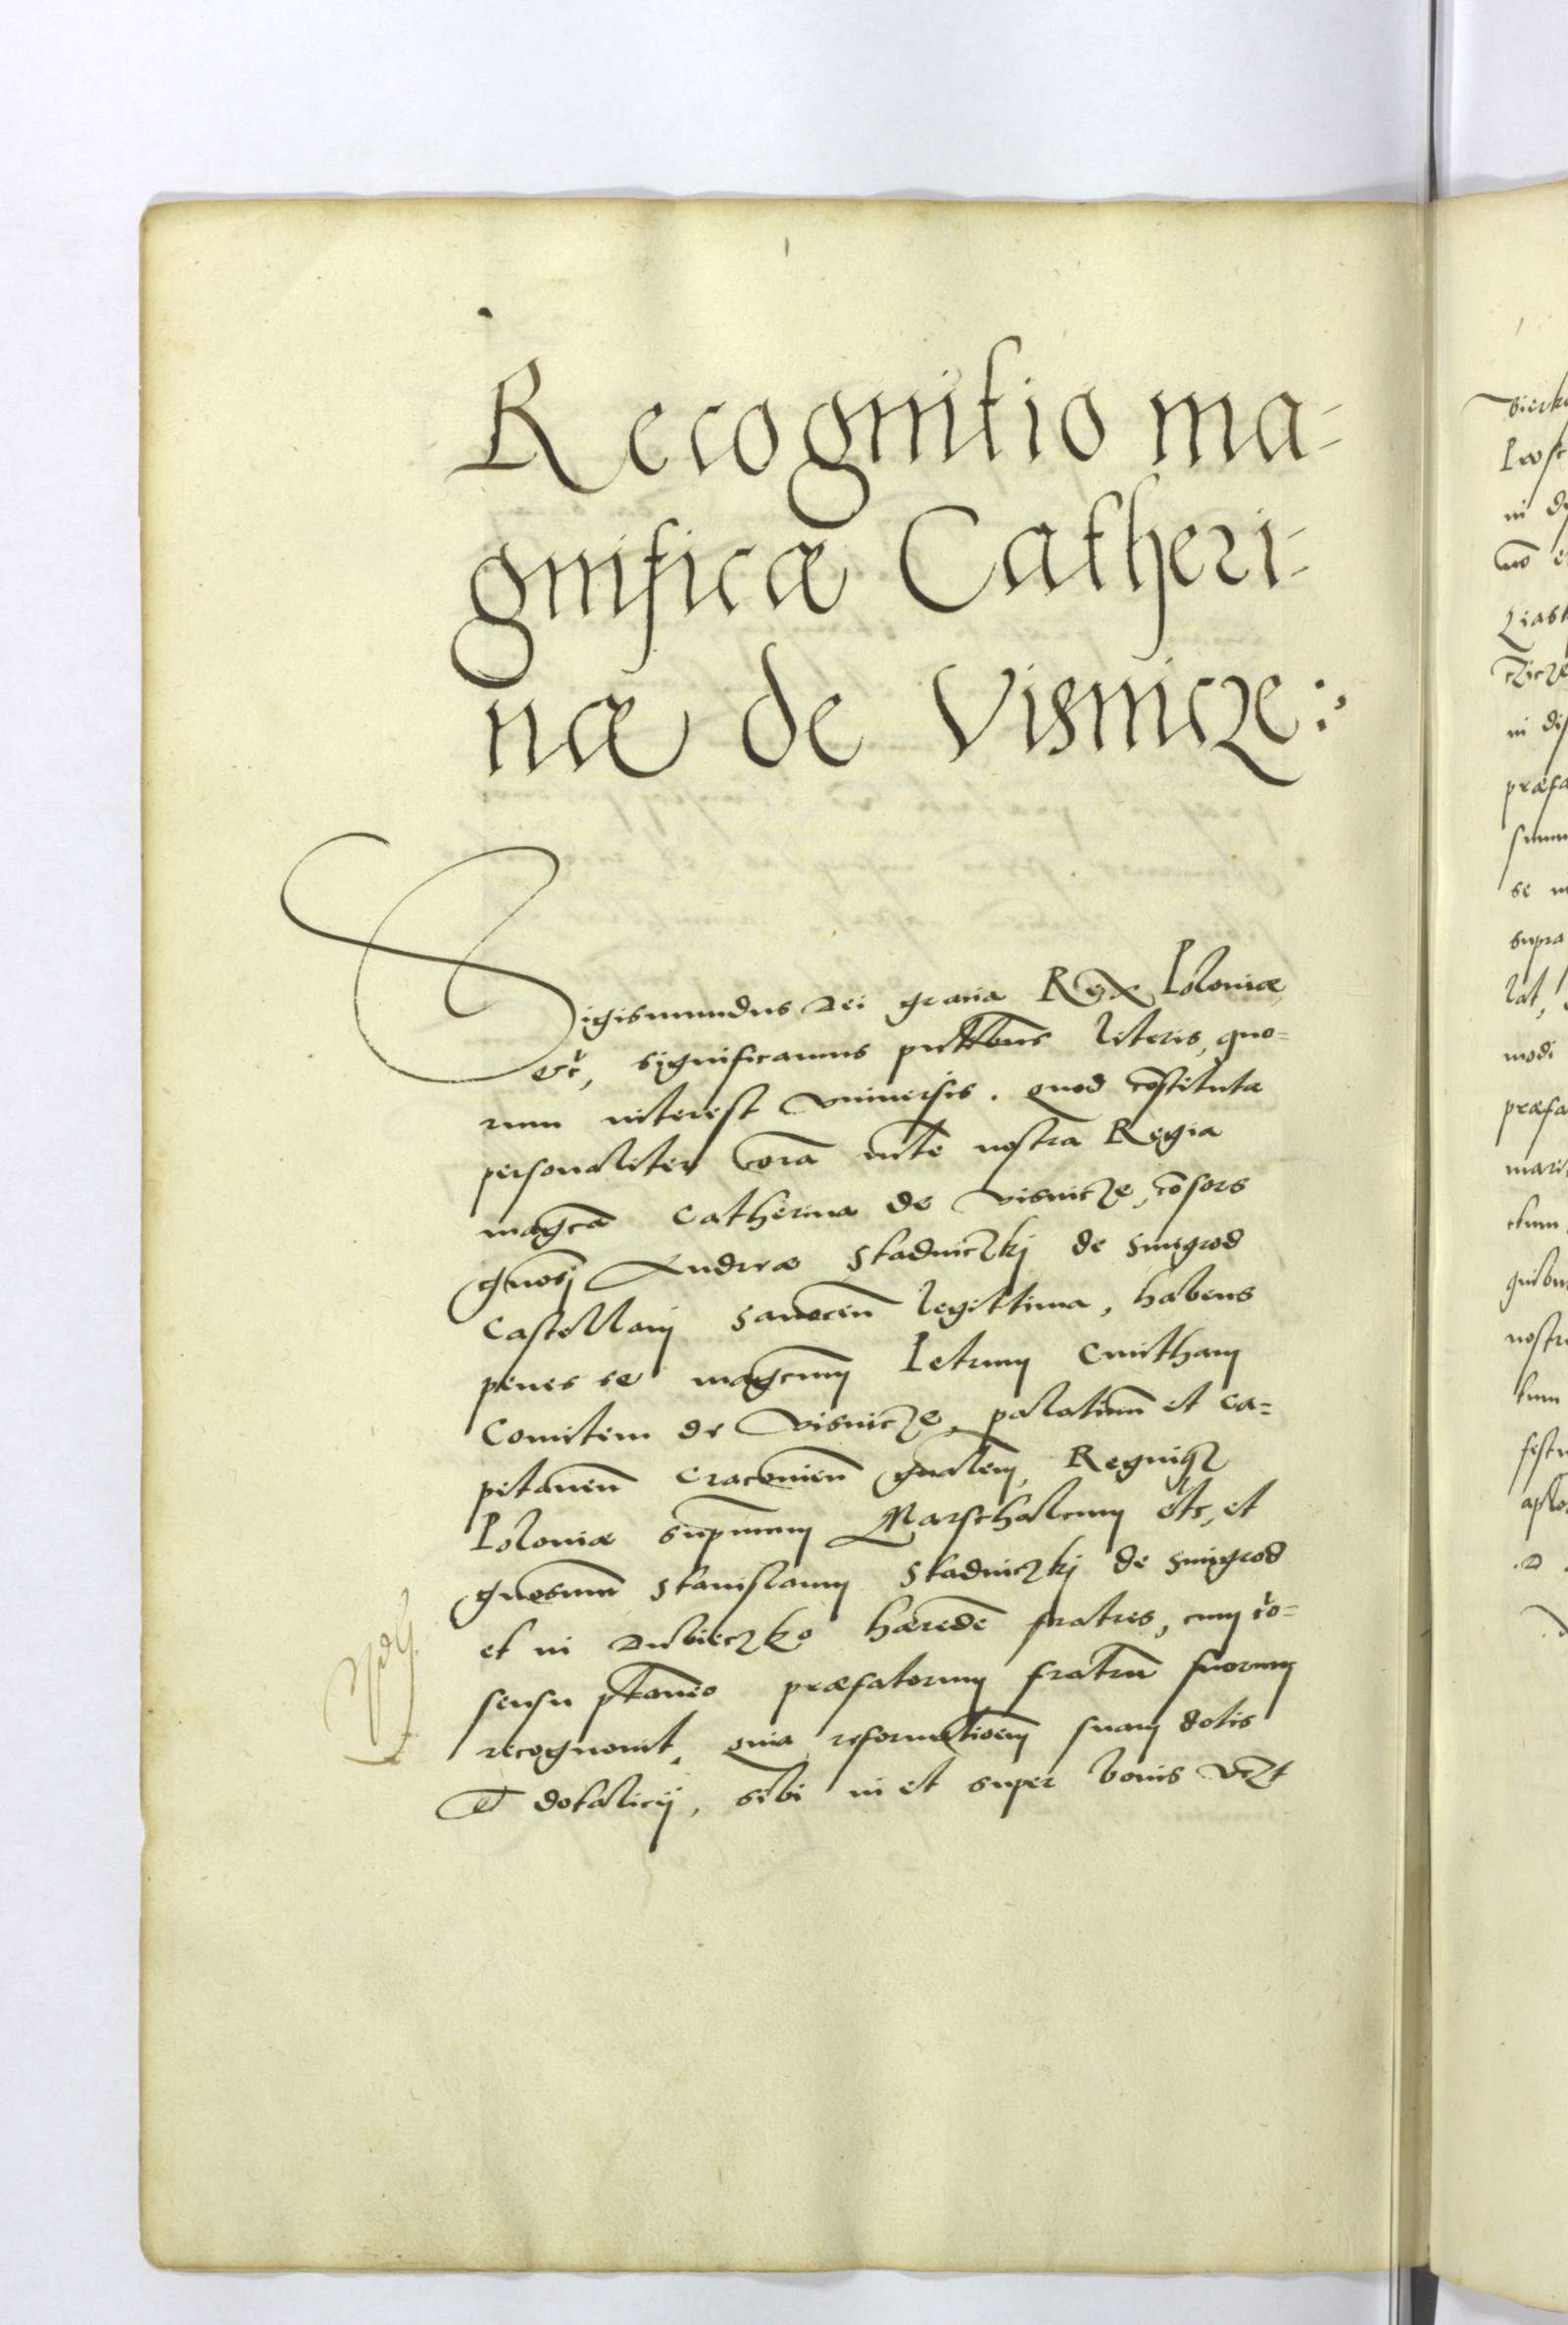 Recognitio ma-
gnificæ Catheri-
næ de Visnicze:
Sigismundus Dei gratia Rex Poloniæ
etc, significamus pñtibus literis, quo=
rum interest vniuersis. quod cōstituta
personaliter corā mte nostra Regia
magcā Catherina de Visnicze, cōsors
gnosi Andreæ Stadniczkj de Smigrod
Castellanj Sanocen̄ legittima, habens
penes se magcum Petrum Cmitham
Comitem de Visnicze, palatinum et ca=
pitaneū Cracouien̄ gnalem, Regniq3
Poloniæ supmum Marschalcum etc, et
gnosum Stanislaum Stadniczkj de Smigrod
et in Dubieczko hæredē fratres, cum cō=
sensu ptaneo præfatorum fratrū suorum
recognouit, quia reformatioem suam dotis
et dotalicij, sibi in et super bonis vizt